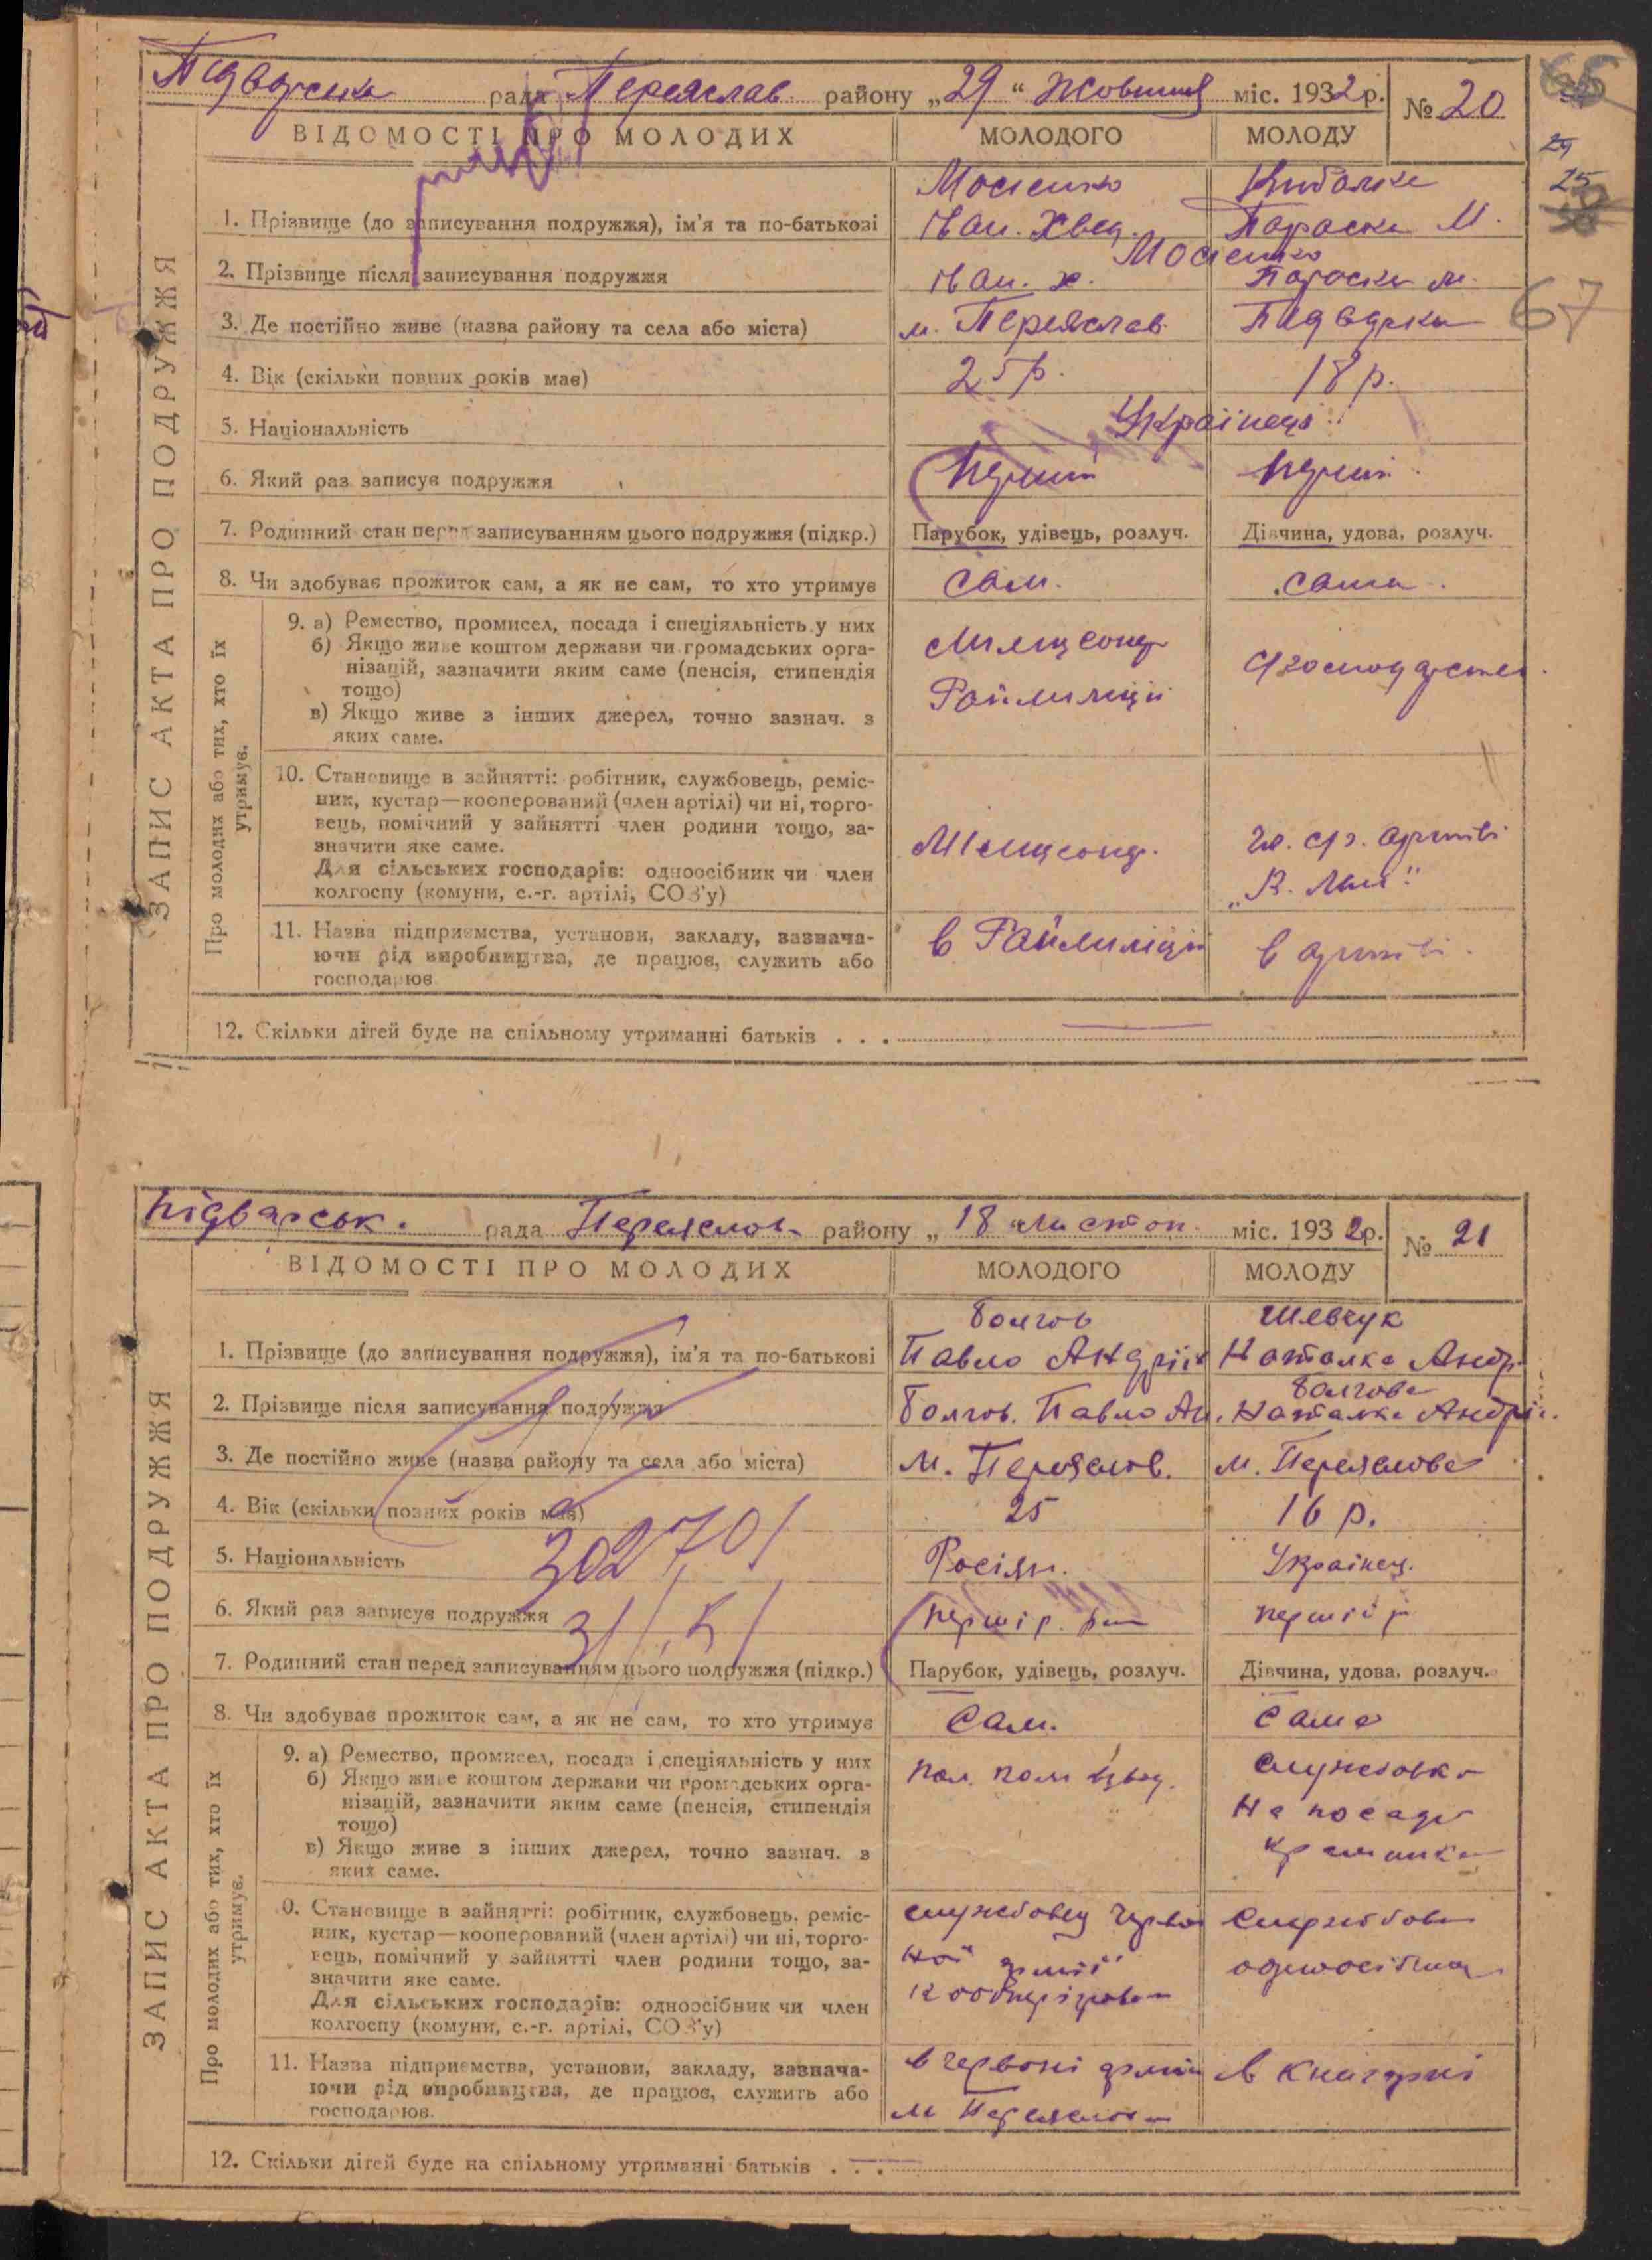 рада Переяслав району „29“ Жовтня міс. 1932 р. № 20
ВІДОМОСТІ ПРО МОЛОДИХ МОЛОДОГО МОЛОДУ
Мосієнко
1. Прізвище (до записування подружжя), ім'я та по-батькові Іван. Хвед. Параска М.
Мосієнко
2. Прізвище після записування подружжя Іван. Х. Параска М.
3. Де постійно живе (назва району та села або міста) м. Переяслав Підварки
67
4. Вік (скільки повних років має) 25 р. 18 р.
5. Національність Українці
6. Який раз записує подружжя перший перший
7. Родинний стан перед записуванням цього подружжя (підкр.) Парубок, удівець, розлуч. Дівчина, удова, розлуч.
8. Чи здобуває прожиток сам, а як не сам, то хто утримує сам. сама.
ЗАПИС АКТА ПРО ПОДРУЖЖЯ
Про молодих або тих, хто їх утримує.
9. а) Ремество, промисел, посада і спеціяльність у них
б) Якщо живе коштом держави чи громадських орга-
нізацій, зазначити яким саме (пенсія, стипендія
тощо)
в) Якщо живе з інших джерел, точно зазнач. з
яких саме.
Райміліції
10. Становище в зайнятті: робітник, службовець, реміс-
ник, кустар—кооперований (член артілі) чи ні, торго-
вець, помічний у зайнятті член родини тощо, за-
значити яке саме.
Для сільських господарів: одноосібник чи член
колгоспу (комуни, с.-г. артілі, СОЗ'у)
11. Назва підприємства, установи, закладу, зазнача-
ючи рід виробництва, де працює, служить або
господарює.
в Райміліції в артілі
12. Скільки дітей буде на спільному утриманні батьків . . .
Підварськ. рада Переяслов. району „18 Листоп. міс. 1932 р. № 21
ВІДОМОСТІ ПРО МОЛОДИХ МОЛОДОГО МОЛОДУ
Болгов Шевчук
1. Прізвище (до записування подружжя), ім'я та по-батькові Павло Андрій Наталка Андр.
Болгова
2. Прізвище після записування подружжя Болгов. Павло Ан. Наталка Андрі.
3. Де постійно живе (назва району та села або міста) м. Переяслов. м. Переяслова
4. Вік (скільки повних років має) 25 16 р.
5. Національність Росіян. Українец.
6. Який раз записує подружжя
7. Родинний стан перед записуванням цього подружжя (підкр.) Парубок, удівець, розлуч. Дівчина, удова, розлуч.
8. Чи здобуває прожиток сам, а як не сам, то хто утримує Сам. Сама
ЗАПИС АКТА ПРО ПОДРУЖЖЯ
Про молодих або тих, хто їх утримує.
9. а) Ремество, промисел, посада і спеціяльність у них
б) Якщо живе коштом держави чи громадських орга-
нізацій, зазначити яким саме (пенсія, стипендія
тощо)
в) Якщо живе з інших джерел, точно зазнач. з
яких саме.
Службовка
На посаді
0. Становище в зайнятті: робітник, службовець, реміс-
ник, кустар—кооперований (член артілі) чи ні, торго-
вець, помічний у зайнятті член родини тощо, за-
значити яке саме.
Для сільських господарів: одноосібник чи член
колгоспу (комуни, с.-г. артілі, СОЗ'у)
службовец Черво
ної армії
11. Назва підприємства, установи, закладу, зазнача-
ючи рід виробництва, де працює, служить або
господарює.
в червоні армії в книгарні
м Переяслов
12. Скільки дітей буде на спільному утриманні батьків . . .